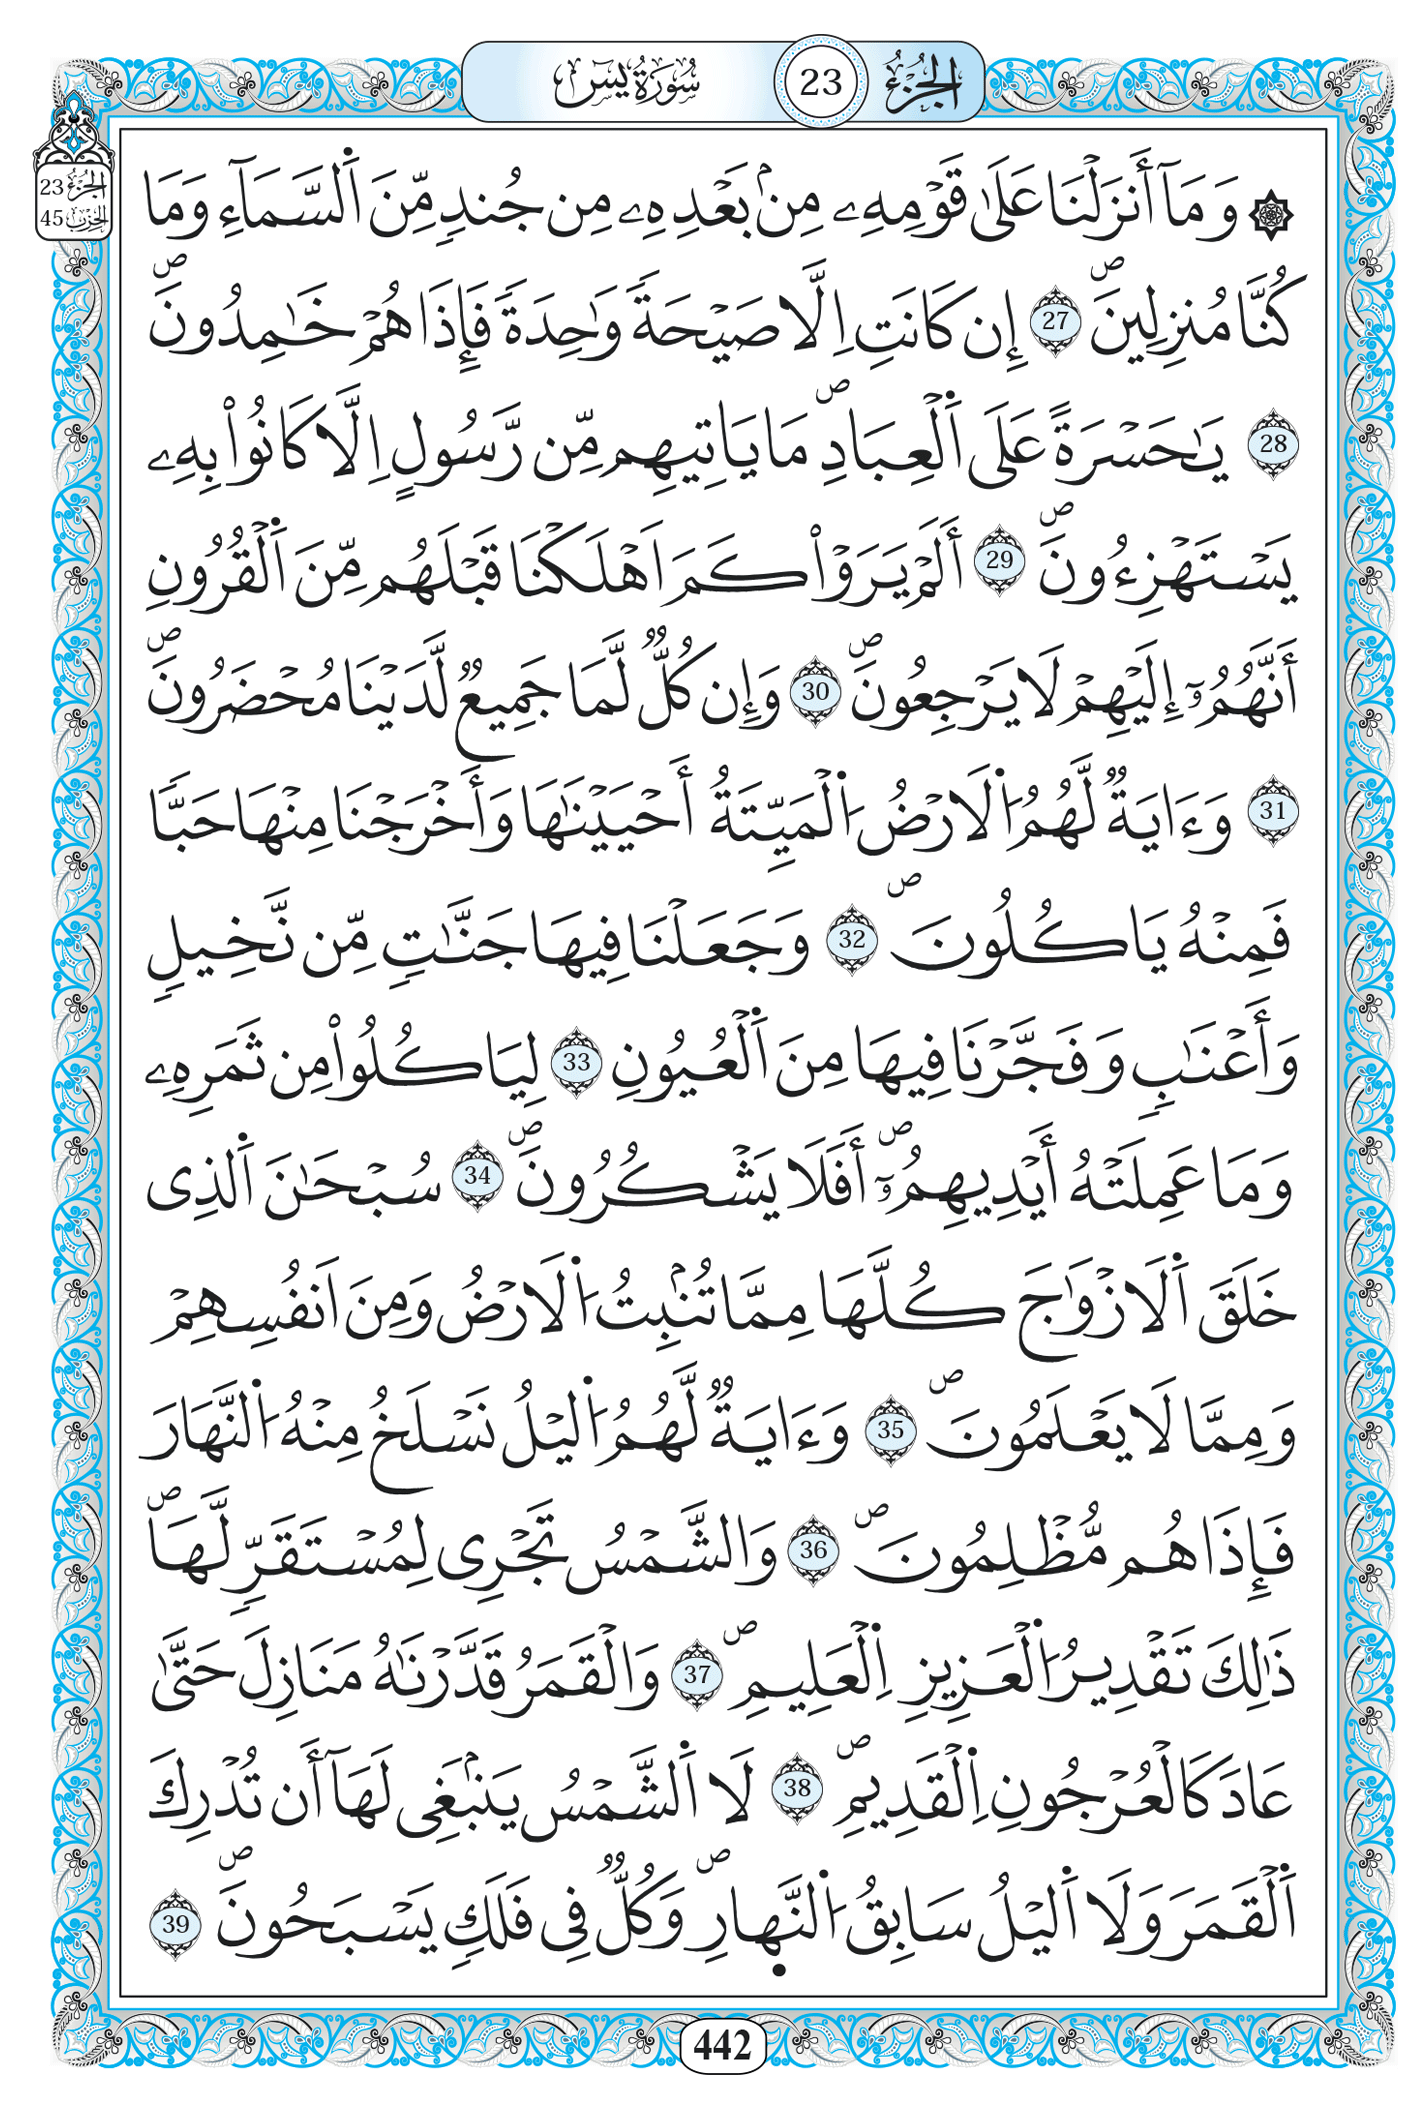 الجزء 23 سورة يس
الجزء 23
الحزب 45
۞ وَمَآ أَنزَلْنَا عَلَىٰ قَوْمِهِۦ مِنۢ بَعْدِهِۦ مِن جُندٖ مِّنَ اَ۬لسَّمَآءِ وَمَا
كُنَّا مُنزِلِينَۖ 27 إِن كَانَتِ اِلَّا صَيْحَةٗ وَٰحِدَةٗ فَإِذَا هُمْ خَٰمِدُونَۖ
28 يَٰحَسْرَةً عَلَى اَ۬لْعِبَادِۖ مَا يَاتِيهِم مِّن رَّسُولٍ اِلَّا كَانُواْ بِهِۦ
يَسْتَهْزِءُونَۖ 29 أَلَمْ يَرَوْاْ كَمَ اَهْلَكْنَا قَبْلَهُم مِّنَ اَ۬لْقُرُونِ
أَنَّهُمُۥٓ إِلَيْهِمْ لَا يَرْجِعُونَۖ 30 وَإِن كُلّٞ لَّمَا جَمِيعٞ لَّدَيْنَا مُحْضَرُونَۖ
31 وَءَايَةٞ لَّهُمُ اُ۬لَارْضُ اُ۬لْمَيِّتَةُ أَحْيَيْنَٰهَا وَأَخْرَجْنَا مِنْهَا حَبّٗا
فَمِنْهُ يَاكُلُونَۖ 32 وَجَعَلْنَا فِيهَا جَنَّٰتٖ مِّن نَّخِيلٖ
وَأَعْنَٰبٖ وَفَجَّرْنَا فِيهَا مِنَ اَ۬لْعُيُونِ 33 لِيَاكُلُواْ مِن ثَمَرِهِۦ
وَمَا عَمِلَتْهُ أَيْدِيهِمُۥٓۖ أَفَلَا يَشْكُرُونَۖ 34 سُبْحَٰنَ اَ۬لذِى
خَلَقَ اَ۬لَازْوَٰجَ كُلَّهَا مِمَّا تُنۢبِتُ اُ۬لَارْضُ وَمِنَ اَنفُسِهِمْ
وَمِمَّا لَا يَعْلَمُونَۖ 35 وَءَايَةٞ لَّهُمُ اُ۬ليْلُ نَسْلَخُ مِنْهُ اُ۬لنَّهَارَ
فَإِذَا هُم مُّظْلِمُونَۖ 36 وَالشَّمْسُ تَجْرِى لِمُسْتَقَرّٖ لَّهَاۖ
ذَٰلِكَ تَقْدِيرُ اُ۬لْعَزِيزِ اِ۬لْعَلِيمِۖ 37 وَالْقَمَرُ قَدَّرْنَٰهُ مَنَازِلَ حَتَّىٰ
عَادَ كَالْعُرْجُونِ اِ۬لْقَدِيمِۖ 38 لَا اَ۬لشَّمْسُ يَنۢبَغِى لَهَآ أَن تُدْرِكَ
اَ۬لْقَمَرَ وَلَا اَ۬ليْلُ سَابِقُ اُ۬لنَّه۪ارِۖ وَكُلّٞ فِى فَلَكٖ يَسْبَحُونَۖ 39
442